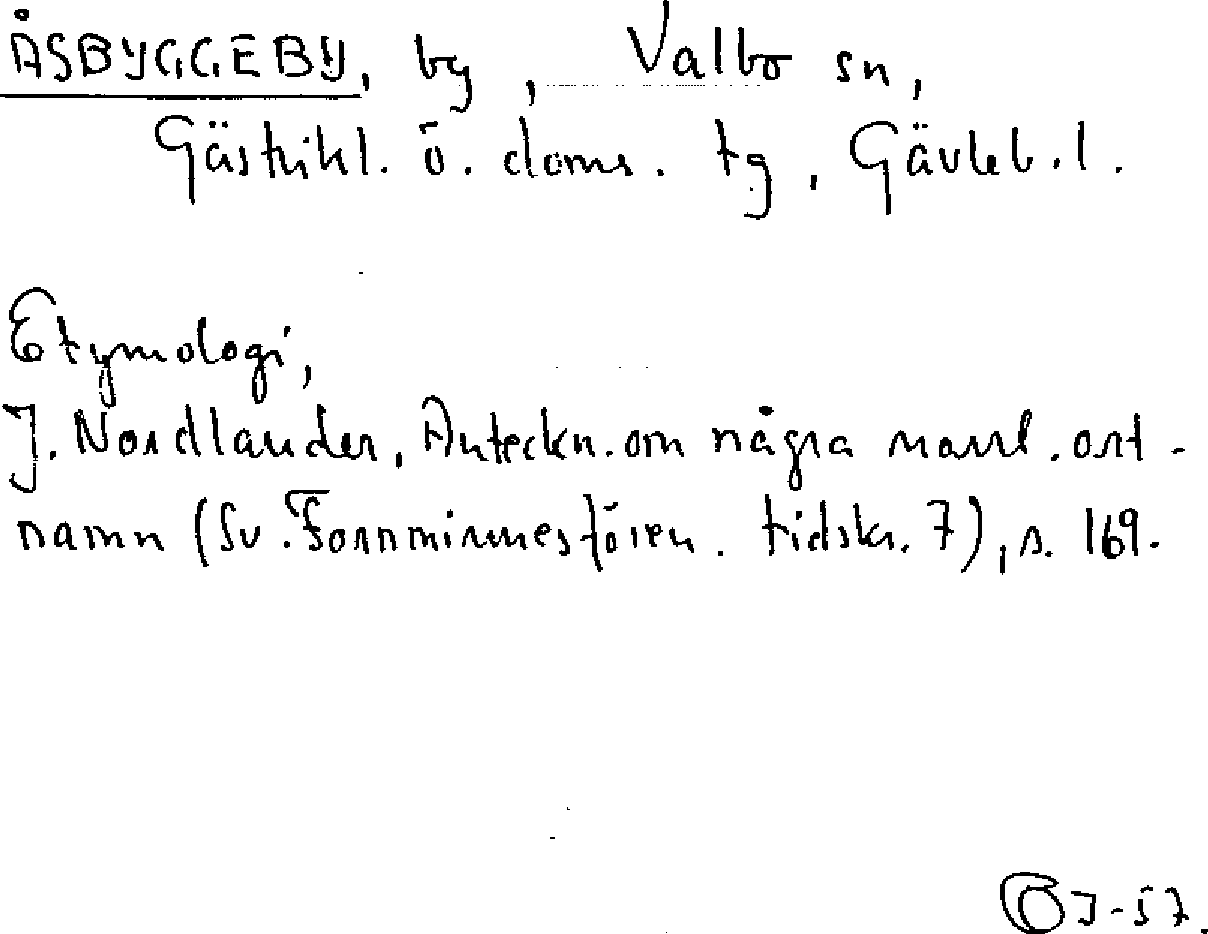 ÅSBYGGEBY, by, Valbo sn,
Gästrikl. ö. doms. tg, Gävleb. l.
Etymologi,
J. Nordlander, Anteckn. om några norrl. ort-
namn (Sv. Fornminnesfören. tidskr. 7), s. 169.